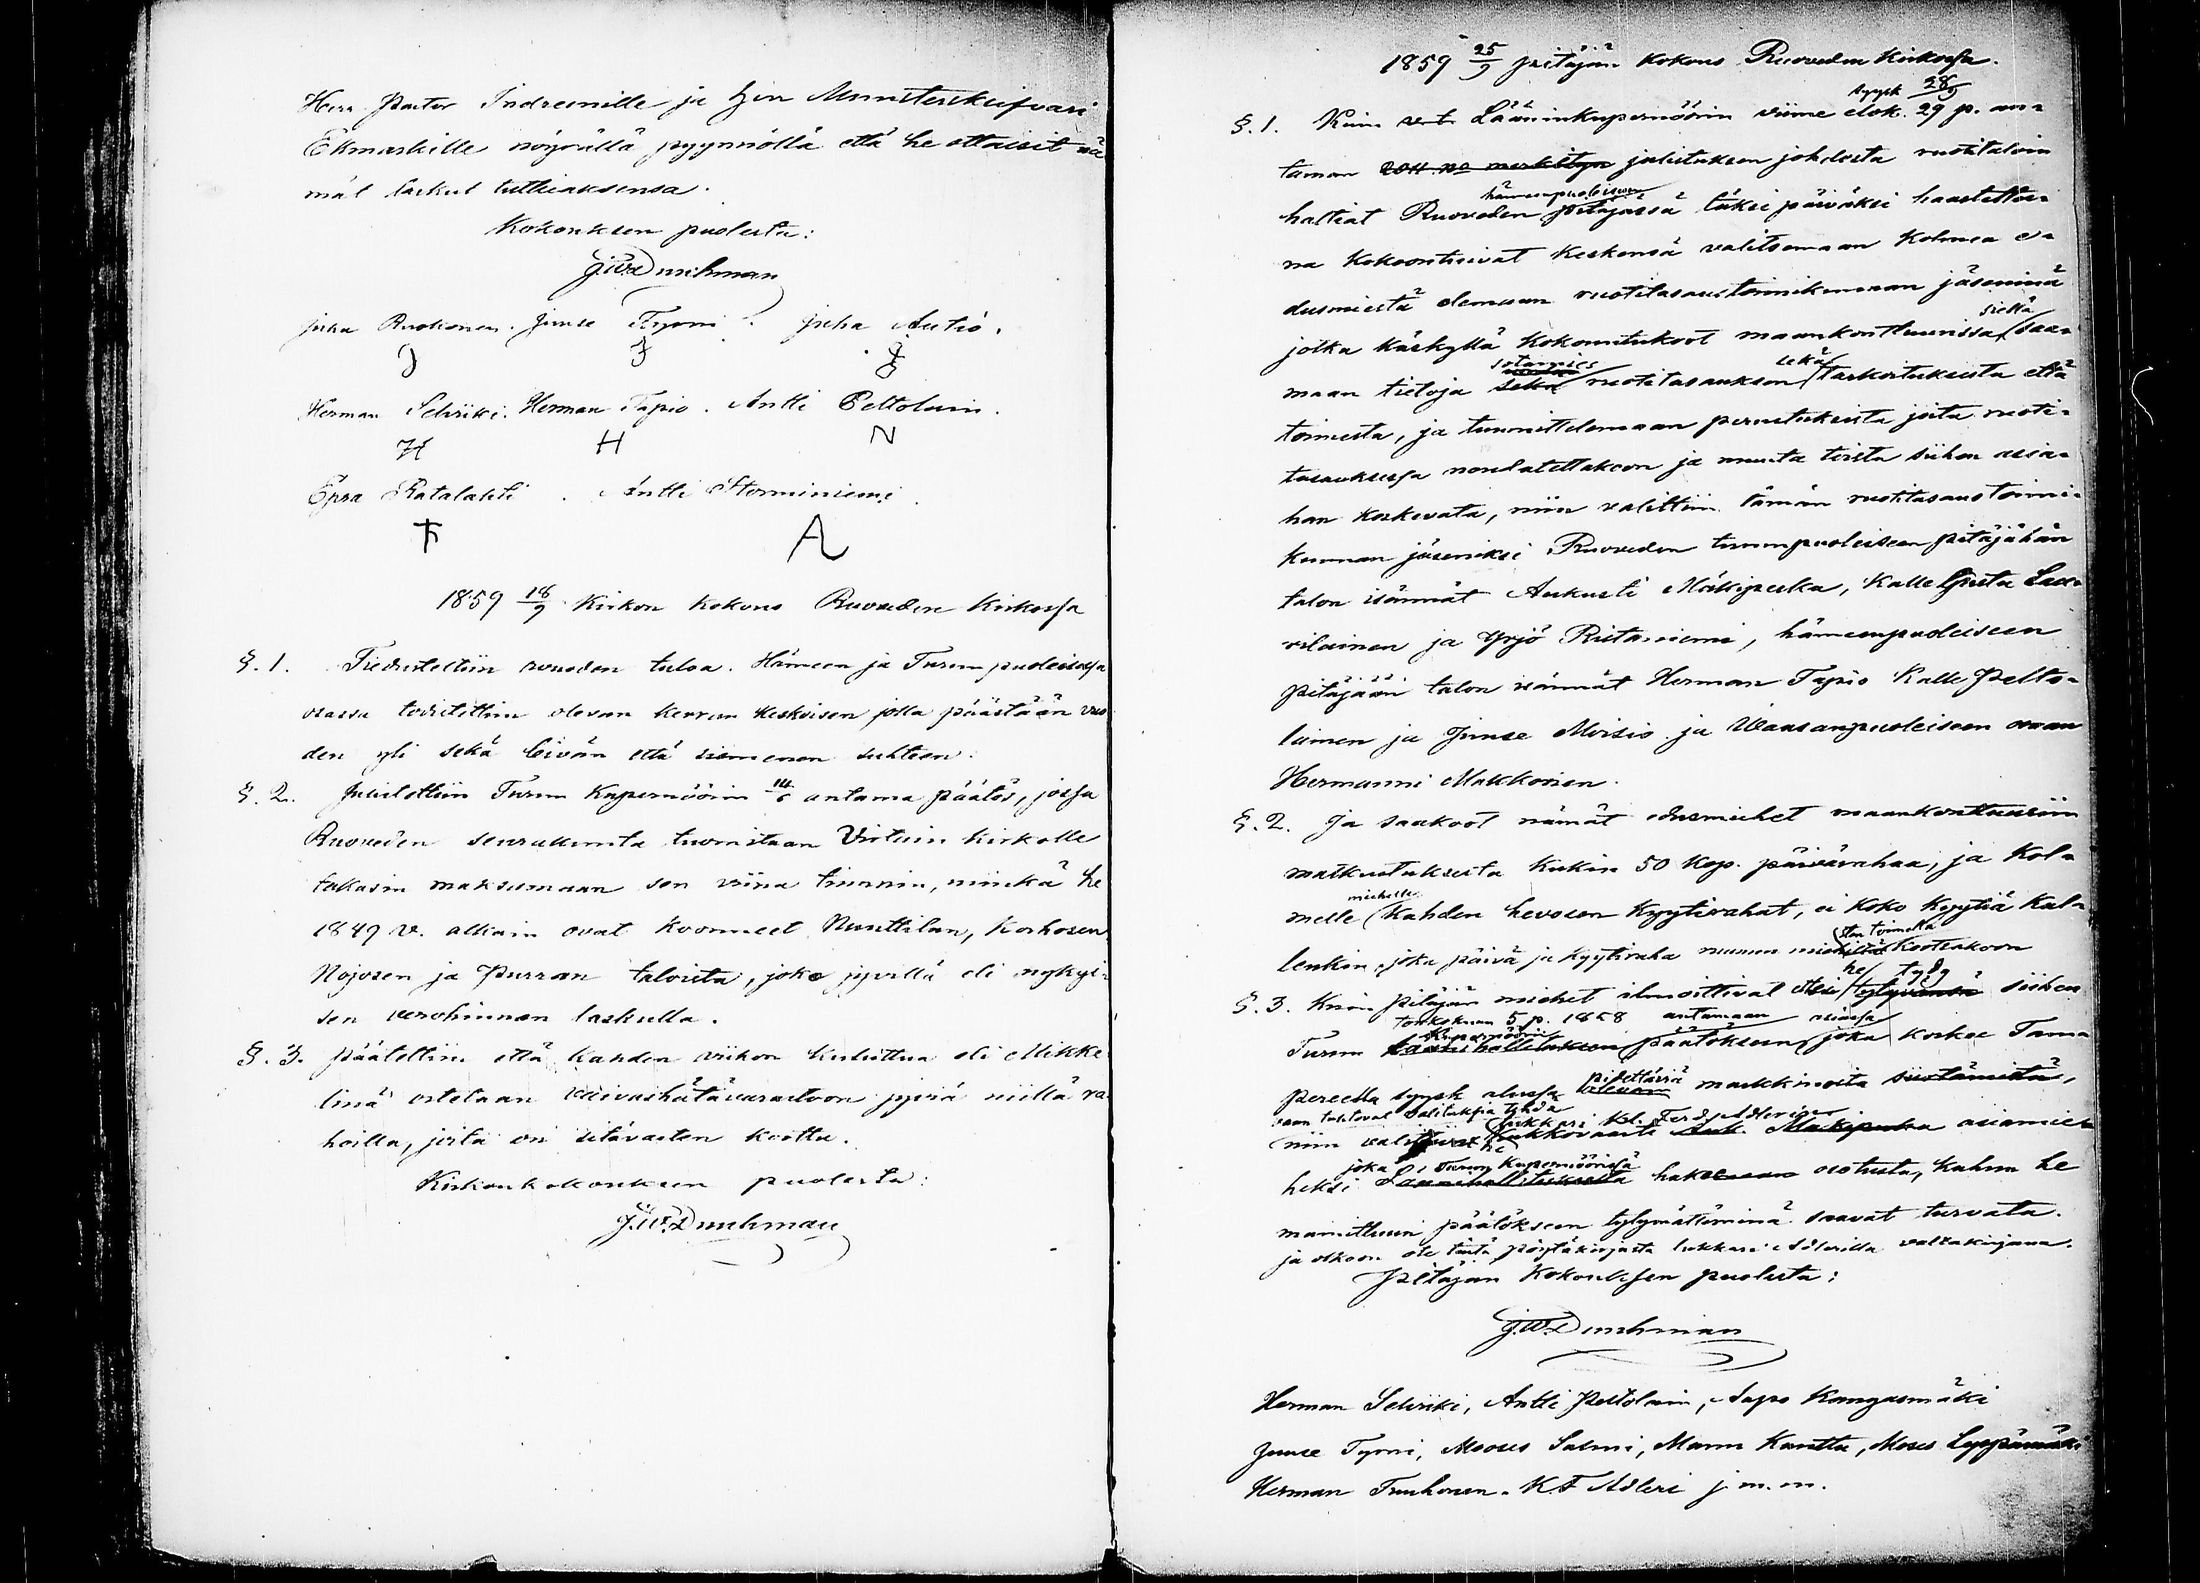 Herr Pastor Indreenille ja Herr Munsterskrifvari
Ekmarkille nöyrällä pyynnöllä että he ottaisit nä
mät laskut tutkiaksensa.
Kokouksen puolesta:
J.W. Durchman
Juha Ruokonen. Juuse Tyrni. Juha Autio.
Herman Selviiki. Herman Tapio. Antti Peltolain.
H H N
Epra Ratalahti. Antti Storminiemi.
A
1859 18/9 Kirkon kokous Ruoveden Kirkossa
§. 1. Tiedusteltiin vuoden tuloa. Hämeen ja Turun puoleisessa
osassa todistettiin olevan kerran keskoisen jolla päästään vuo
den yli sekä leivän että siemenen suhteen.
§. 2. Julistettiin Turun Kupernöörin 14/6 antama päätös, jossa
Ruoveden seurakunta tuomitaan Virtain kirkolle
takasin maksamaan sen viina tynnrin, minkä he
1849 v. alkain ovat koonneet Nunttilan, Korhosen
Nojosen ja Purran taloista, joko jyvillä eli nykyi-
sen verohinnan laskulla.
§. 3. Päätettiin että kahden viikon kuluttua eli Mikke
linä ostetaan vaivashätävarastoon jyviä niillä ra
hoilla, joita on sitävasten koottu.
Kirkonkokouksen puolesta:
J.W. Durchman
1859 25/9 pitäjän kokous Ruoveden Kirkossa.
syysk 28/9
§. 1. Kuin Lääninkupernöörin viime elok. 29 p. an-
taman merkityn julistuksen johdosta ruotitaloin
hämeenpuoleisen
haltiat Ruoveden pitäjässä täksi päiväksi haastettui-
na kokoontuivat keskensä valitsemaan kolmea e-
dusmiestä olemaan ruotitasaustoimikunnan jäseninä
siellä
jotka käskyllä kokoontukoot maankonttuurissa saa-
sotamies sekä
maan tietoja sekä ruotitasauksen tarkoituksesta että
toimesta, ja tuumittelemaan perustuksista joita ruoti-
tasauksessa noudatettakoon ja muuta toista siihen asia-
han koskevata, niin valittiin tämän ruotitasaustoimi-
kunnan jäseniksi Ruoveden turunpuoleiseen pitäjähän
talon isännät Aukusti Mäkipeska, Kalle Gusta Sav-
vilainen ja Yrjö Ristaniemi, hämeenpuoleiseen
pitäjään talon isännät Herman Tapio Kalle Pelto-
lainen ja Juuse Moisio ja Waasanpuoleiseen osaan
Hermanni Makkonen.
§. 2. Ja saakoot nämät edusmiehet maankonttuuriin
matkustuksesta kukin 50 kop. päivärahaa, ja kol-
miehelle
melle kahden hevosen kyytirahat, ei koko kyytiä kul-
stan toimella
lenkin, joka päivä ja kyytiraha koottakoon
he tydy
§. 3. Kuin pitäjän miehet ilmoittivat ettei tytyvänsä siihen
toukokuun 5 p. 1858 antamaan asiassa
Kupernöörin
Turun Läänihallituksen päätökseen joka koskee Tam-
pidettäviä
pereella syysk alussa olevan markkinoita siirtämistä,
vaan tahtovat valituksia tehdä
lukkari Kl. Ferd. Adlerin
niin Auk. Mäkipeska asiamie-
he
joka Turun Kupernööriltä
heksi Läänihallitukselta hakemaan osotusta, kuhun he
mainittuun päätökseen tytymättöminä saavat turvata.
ja olkoon ote tästä pöytäkirjasta lukkari Adlerilla valtakirjana.
Pitäjän kokouksen puolesta:
J.W. Durchman
Herman Selviiki, Antti Peltolain, Aapo Kangasmäki
Juuse Tyrni, Mooses Salmi, Manu Kanttu, Moses Leppämäki
Herman Tuuhonen. K.F Adleri j m. m.